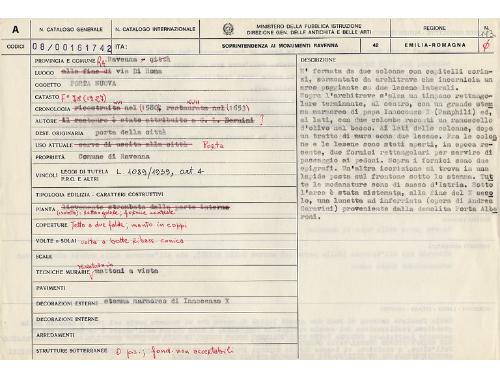 A
N. CATALOGO GENERALE
N. CATALOGO INTERNAZIONALE
MINISTERO DELLA PUBBLICA ISTRUZIONE
DIREZIONE GEN. DELLE ANTICHITÀ E BELLE ARTI
REGIONE
N.
CODICI
08/00161742
ITA:
SOPRINTENDENZA AI MONUMENTI RAVENNA
42
EMILIA-ROMAGNA
PROVINCIA E COMUNE Ra Ravenna - città
LUOGO alla fine di via Di Roma
OGGETTO PORTA NUOVA
CATASTO F° 78 (1987)
CRONOLOGIA ricostruita nel (1580, restaurata nel (1653)
AUTORE il restauro è stato attribuito a G. L. Bernini ?
DEST. ORIGINARIA porta della città
USO ATTUALE arco di uscita alla città Porta
PROPRIETÀ Comune di Ravenna
VINCOLI LEGGI DI TUTELA L. 1089/1939, art. 4
P.R.G. E ALTRI
TIPOLOGIA EDILIZIA - CARATTERI COSTRUTTIVI
PIANTA lievemente strombata dalla parte interna
COPERTURE Tetto a due falde, manto in coppi
VOLTE o SOLAI volta a botte
SCALE
TECNICHE MURARIE mattoni a vista
PAVIMENTI
DECORAZIONI ESTERNE stemma marmoreo di Innocenzo X
DECORAZIONI INTERNE
ARREDAMENTI
STRUTTURE SOTTERRANEE
DESCRIZIONE
E' formata da due colonne con capitelli corin-
zi, sormontate da architrave che incornicia un
arco poggiante su due lesene laterali.
Sopra l'architrave s'alza un timpano rettango-
lare terminale, al centro, con un grande stem-
ma marmoreo di papa Innocenzo X (Pamphili) ed,
ai lati, con due colombe recanti un ramoscello
d'olivo nel becco. Ai lati delle colonne, dopo
un tratto di muro sono due lesene. Fra le colon-
ne e le lesene sono stati aperti, in epoca re-
cente, due fornici rettangolari per servire di
passaggio ai pedoni. Sopra i fornici sono due
epigrafi. Un'altra iscrizione si trova in una
lapide posta sul frontone sotto lo stemma. Tut-
te le modanature sono di sasso d'Istria. Sotto
l'arco è stata sistemata, alla fine del X seco-
lo, una lunetta ad inferriata (opera di Andrea
Garavini) proveniente dalla demolita Porta Albe-
roni.